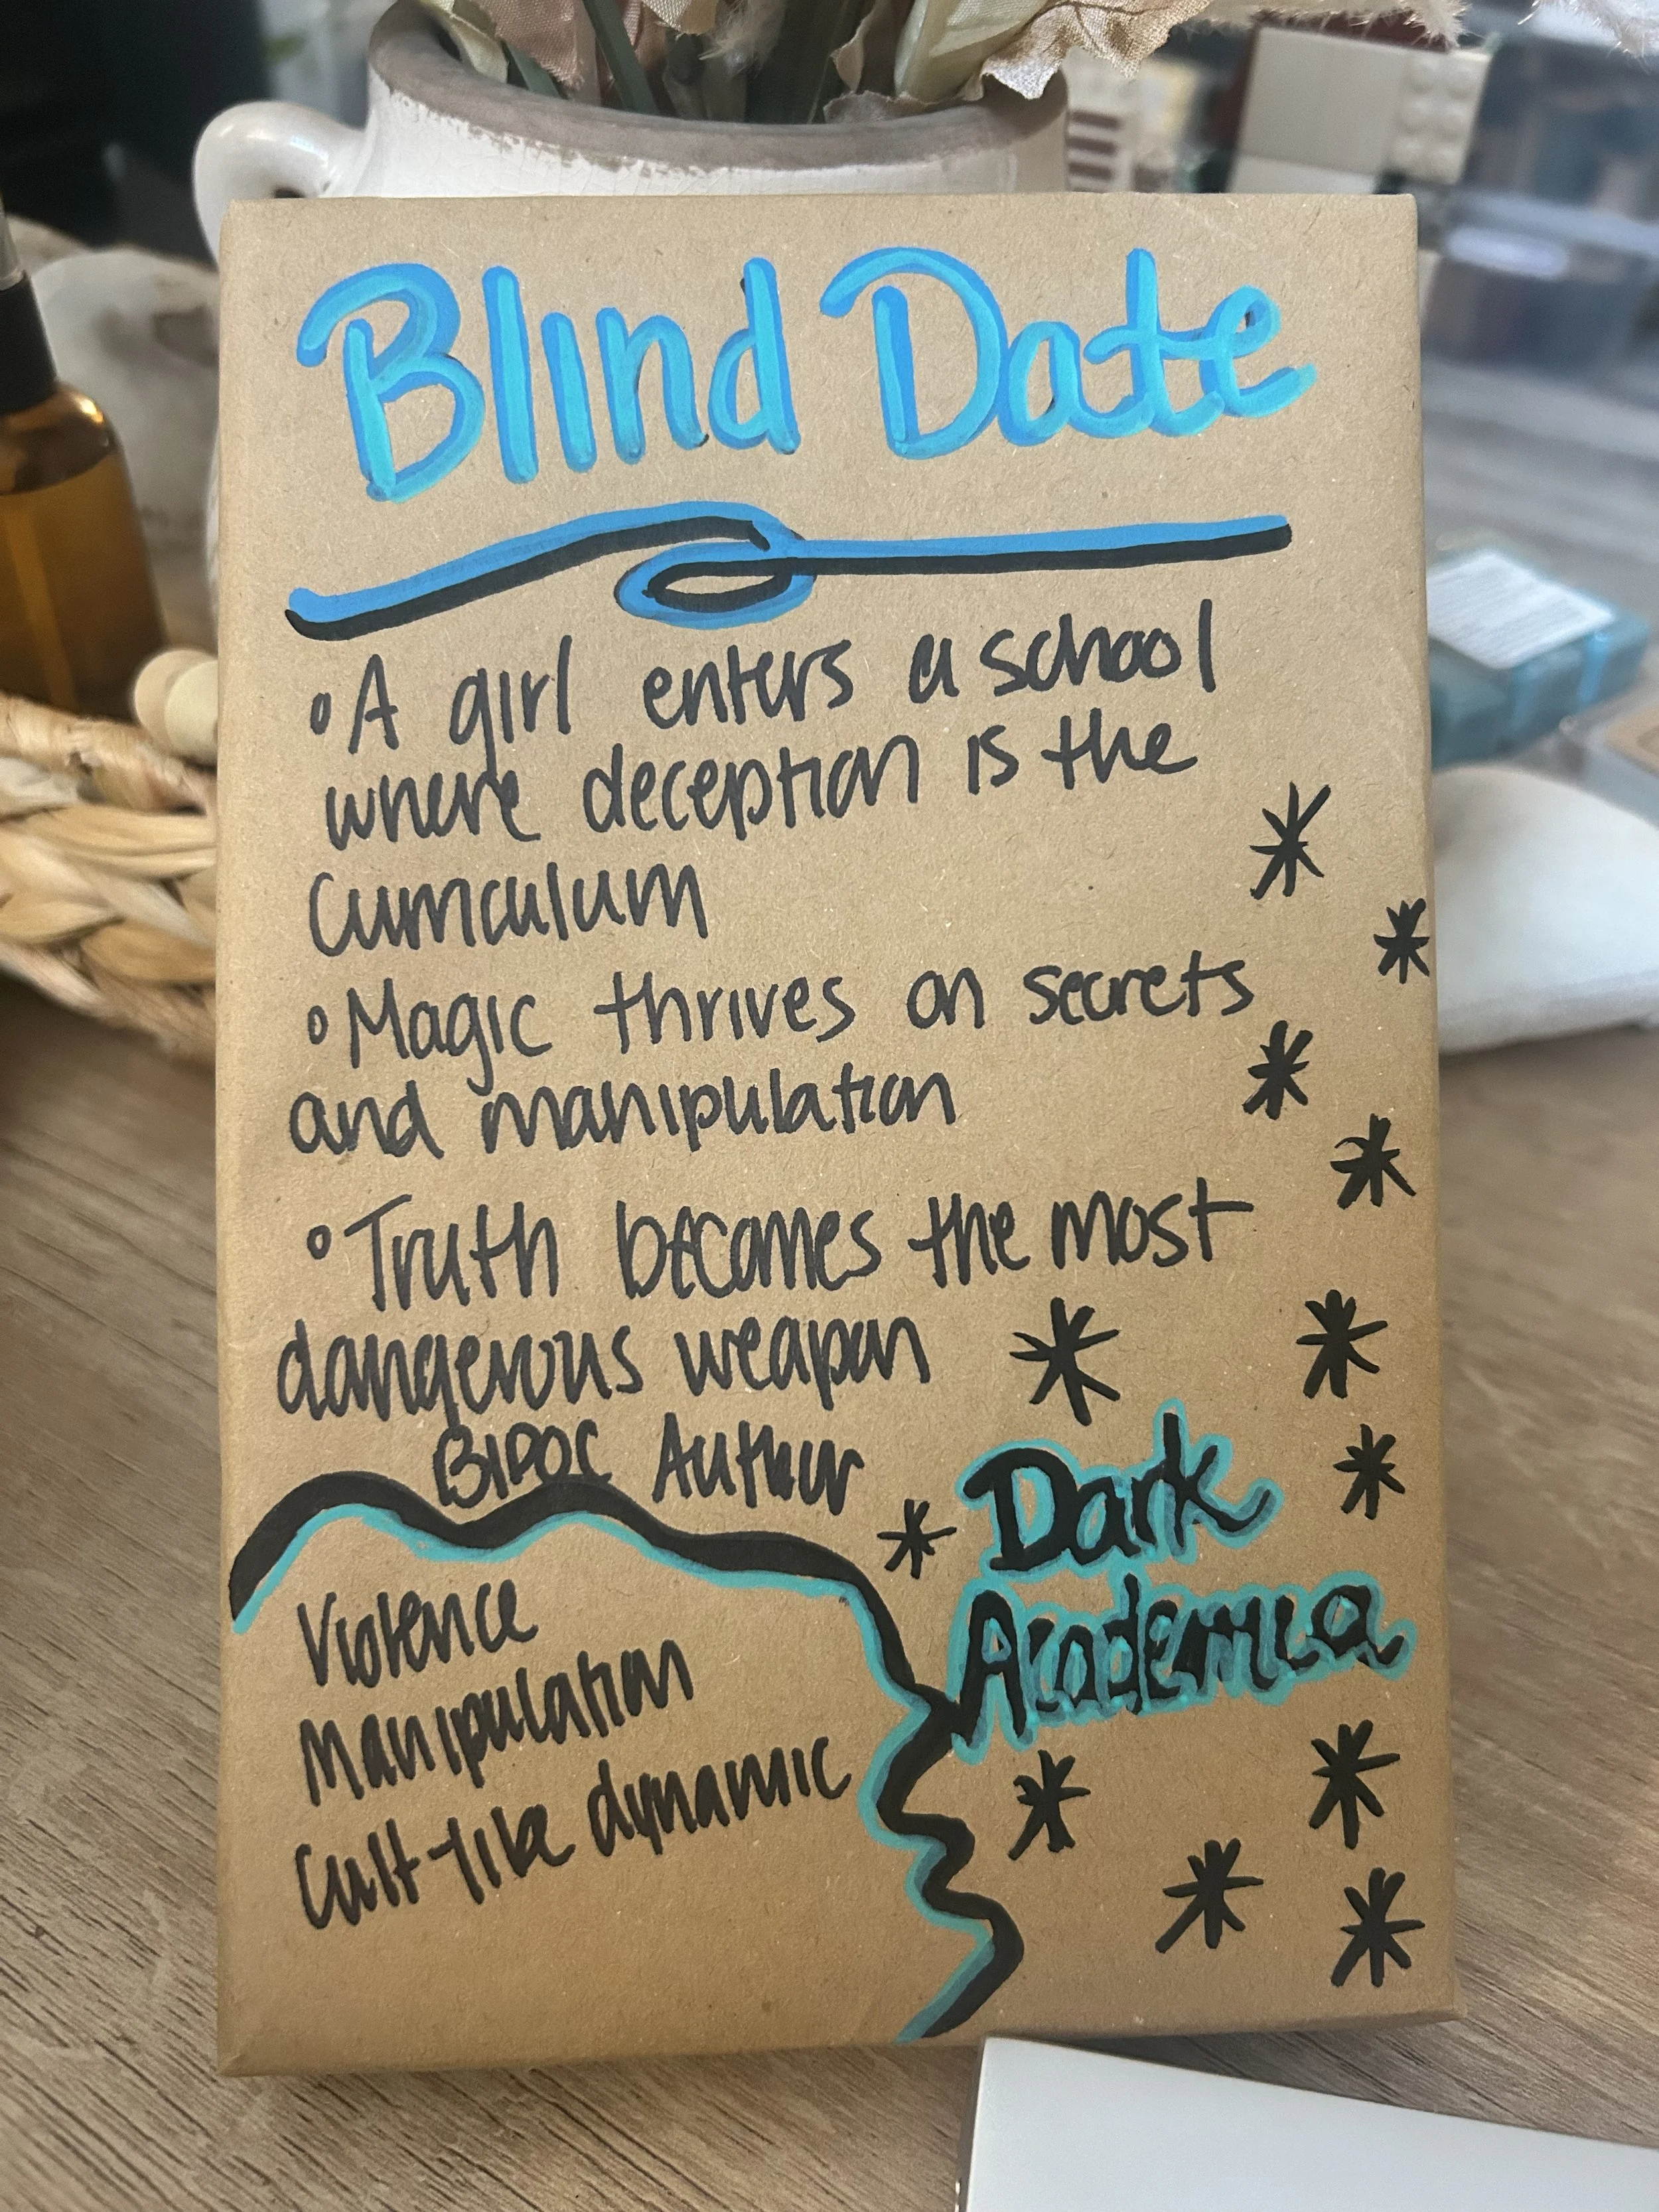 Blind Date
• A girl enters a school
where deception is the
curriculum
• Magic thrives on secrets
and manipulation
• Truth becomes the most
dangerous weapon
BIPOC Author
Dark
Academia
Violence
Manipulation
Cult-like dynamic